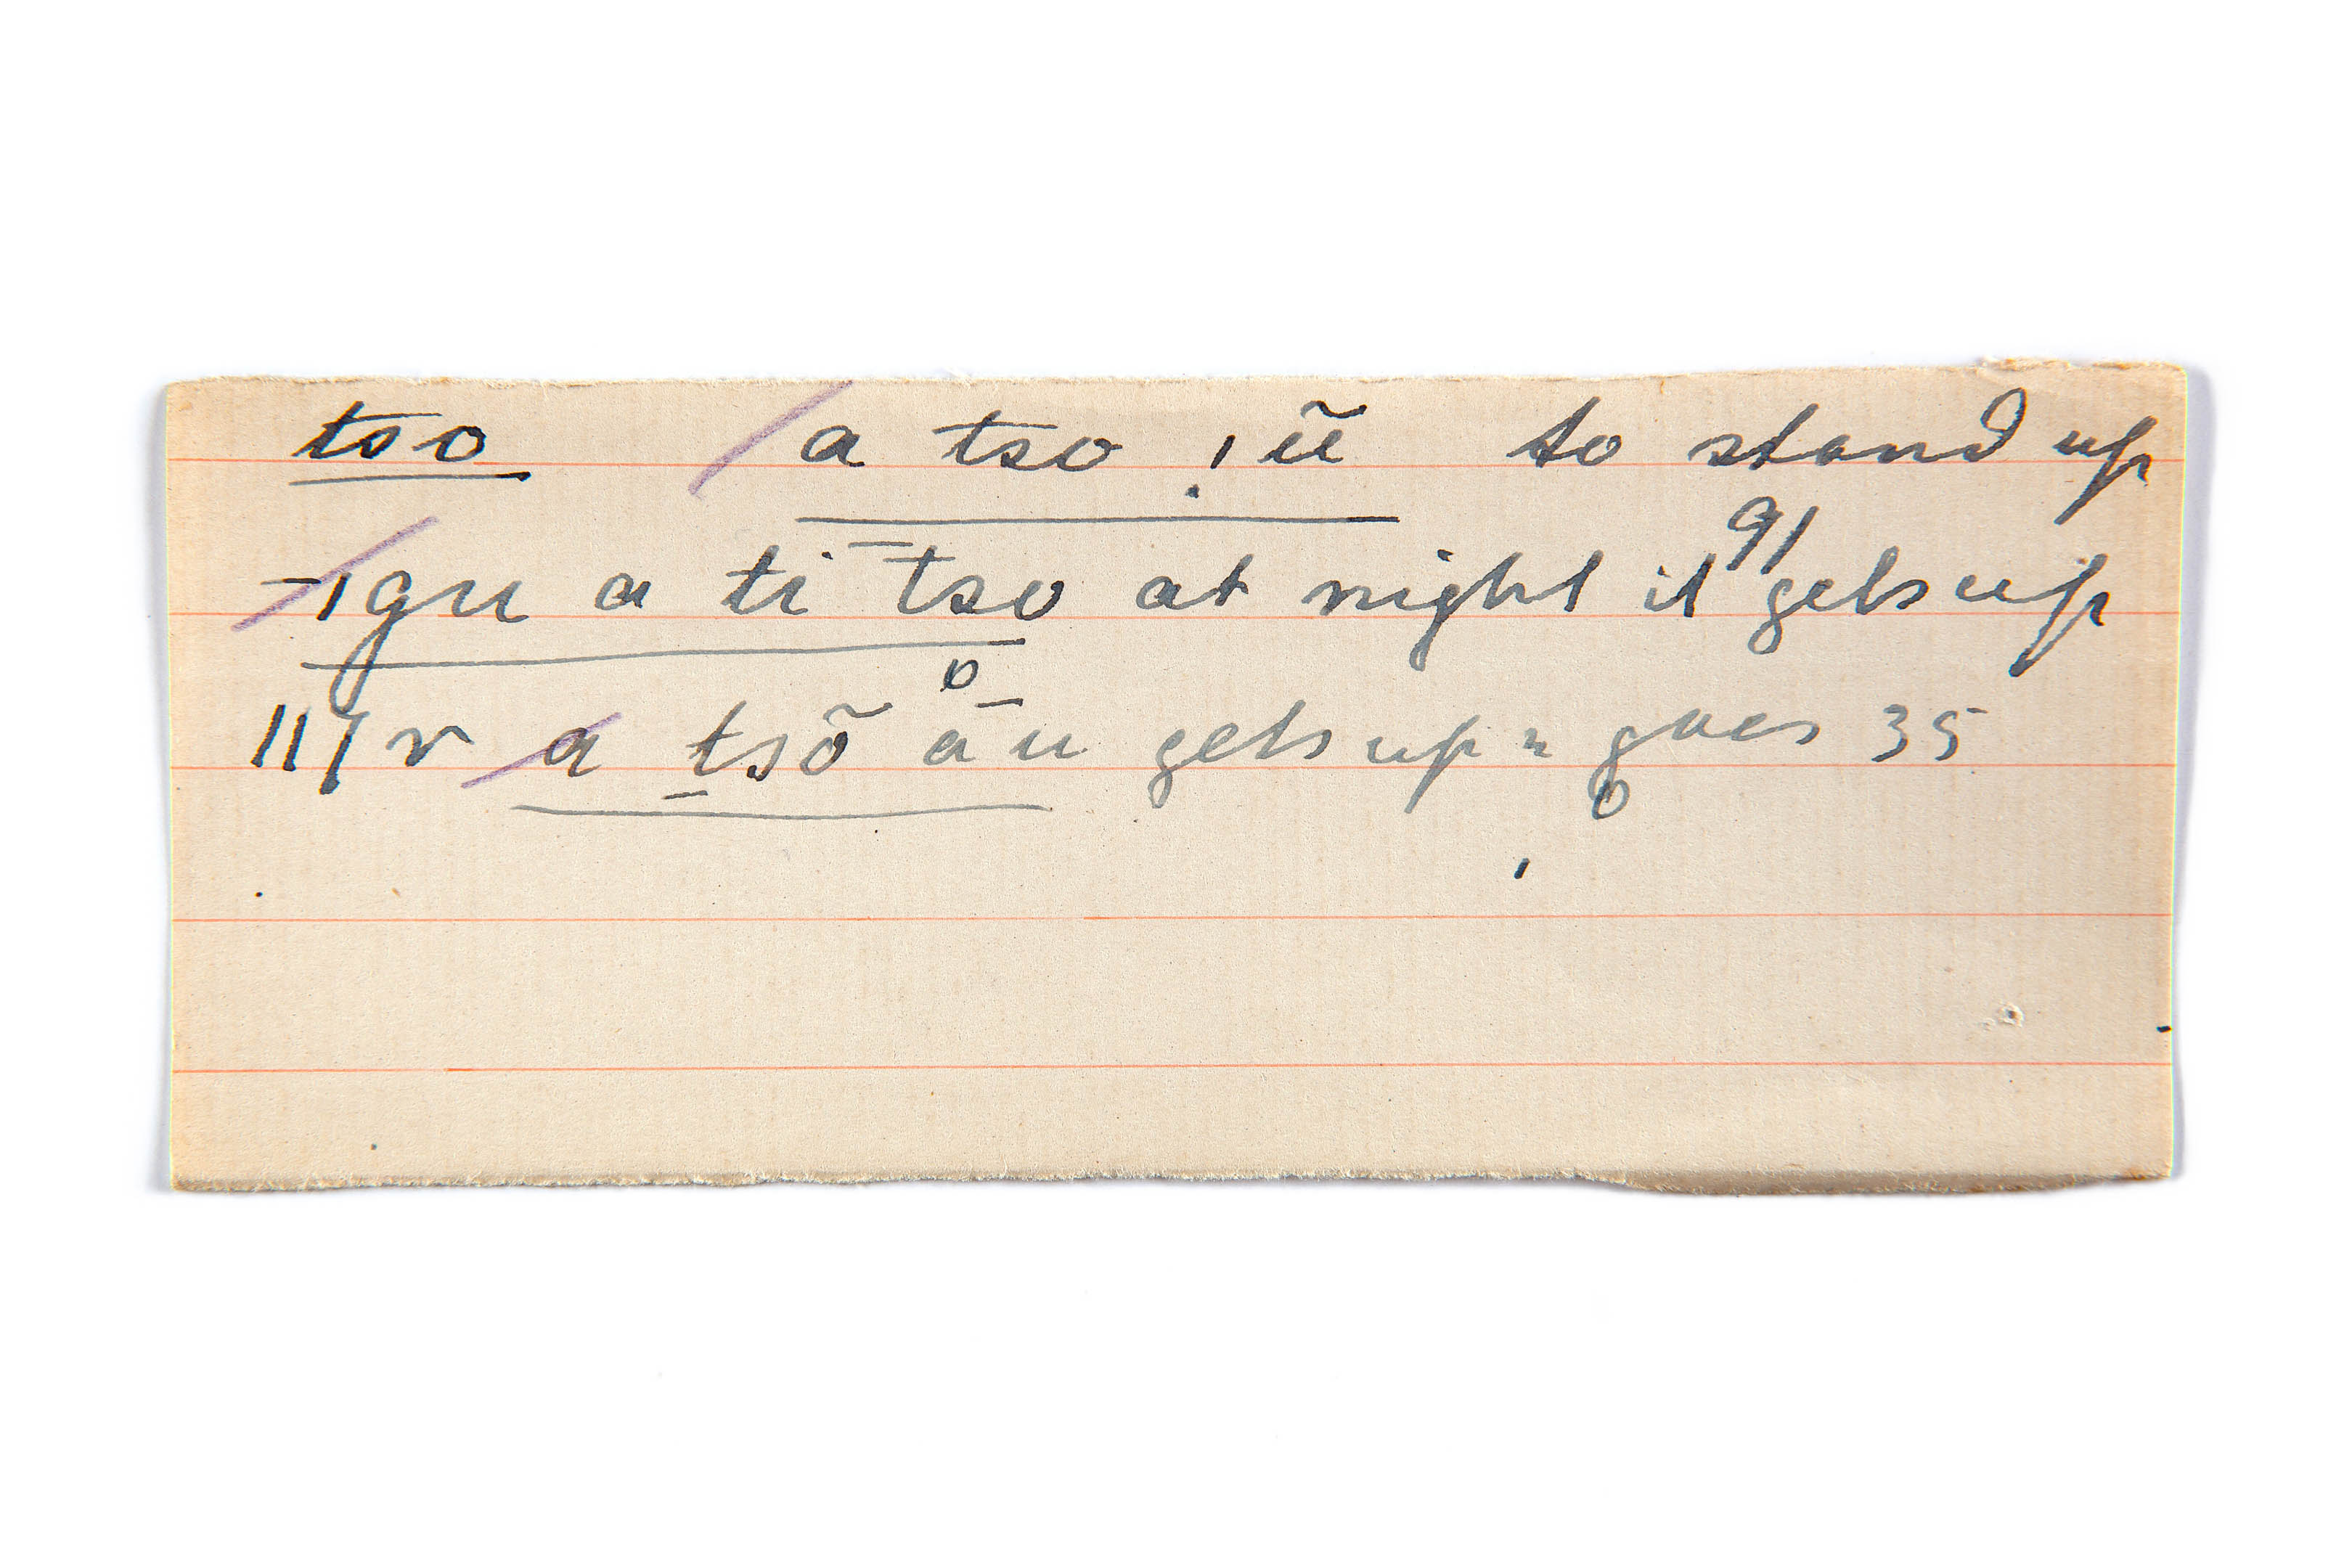 tso a tso ı̣ ũ to stand up
‾ı gu a ti ‾tso at night it gets up 91
11/ r a ṯsõ åˉu gets up & goes 35